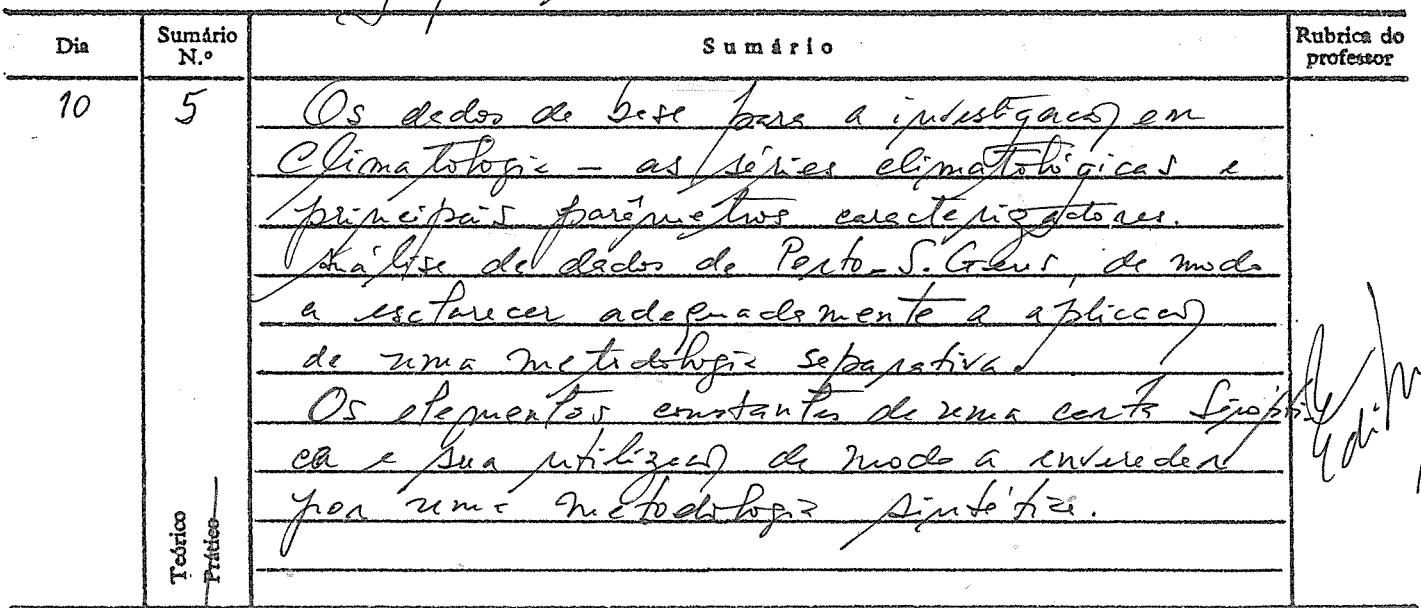 Dia
Sumário N.º
Sumário
Rubrica do professor
10
5
Os dados de base para a investigação em
Climatologia – as séries climatológicas e
principais parâmetros caracterizadores.
Análise de dados de Porto-S. Gens, de modo
a esclarecer adequadamente a aplicação
de uma metodologia separativa.
Os elementos constantes de uma carta Sinópti-
ca e sua utilização de modo a enveredar
por uma metodologia sintética.
Teórico
Prático